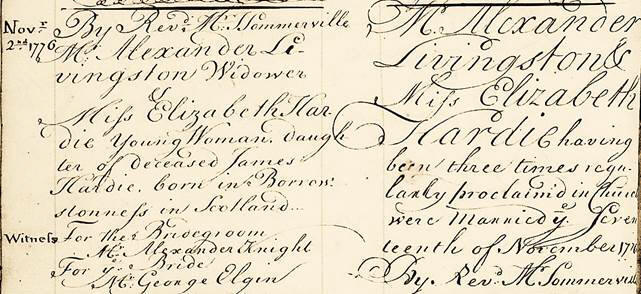 Novr
2nd 1776
By Revd. Mr. Sommerville
Mr. Alexander Li-
vingston Widower
&
Miss Elizabeth Har-
die Young Woman. daugh
ter of deceased James
Hardie. born in Borrow:
stonness in Scotland...
Witness
For the Bridegroom
Mr. Alexander Knight
For ye. Bride
Mr. George Elgin
Mr. Alexander
Livingston &
Miss Elizabeth
Hardie having
been three times regu-
larly proclaim'd in Church
were Married ye. Seven
teenth of November 1776
By Revd. Mr. Sommervill